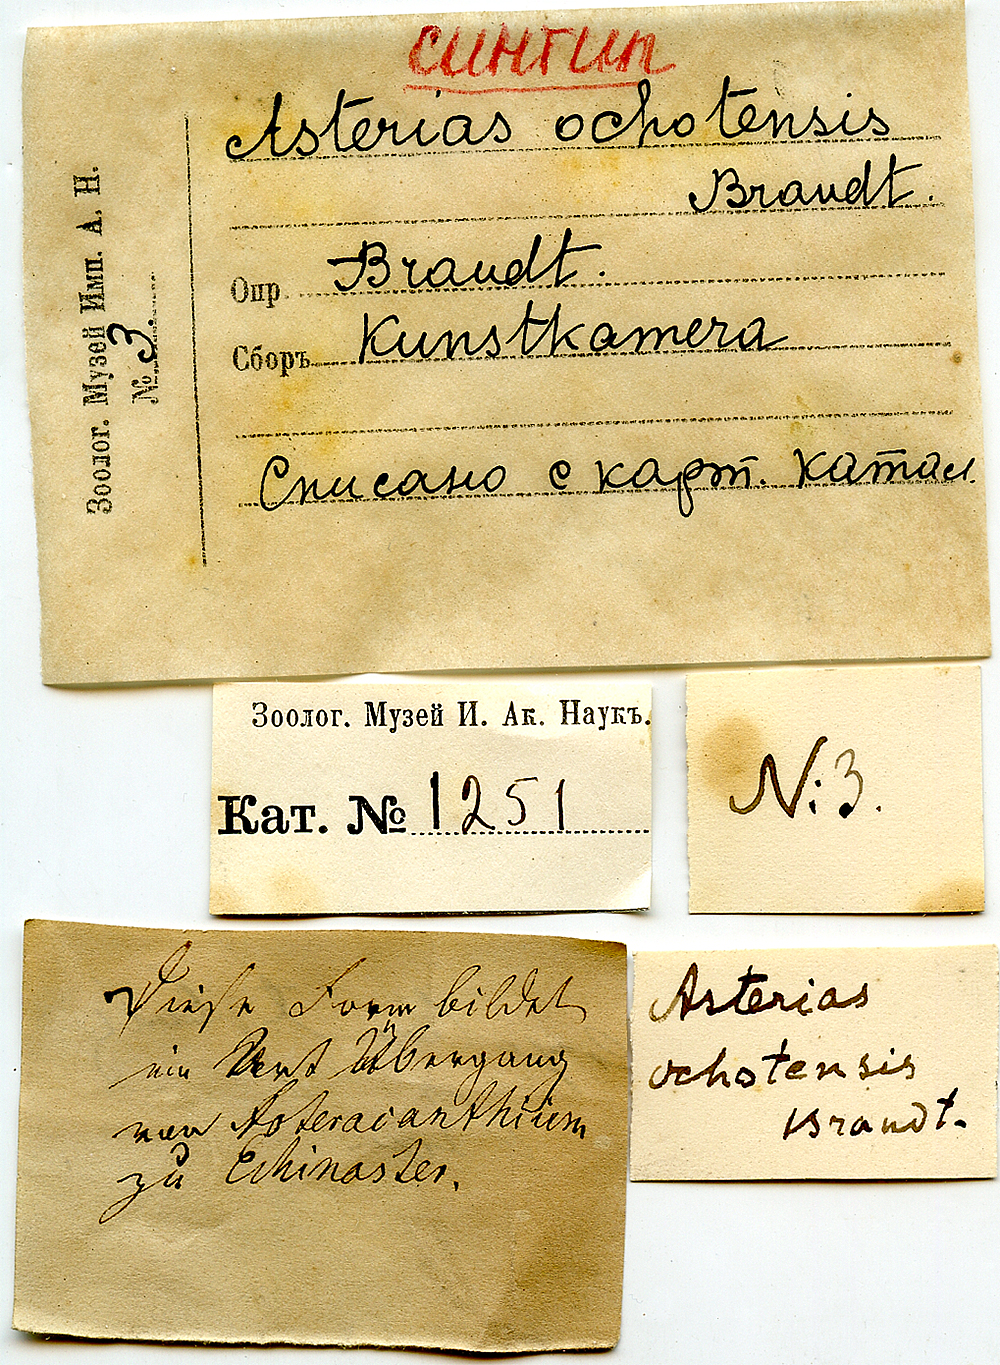 синтип
Asterias ochotensis
Brandt.
Опр. Brandt.
Сборъ Kunstkamera
Списано с карт. катал.
Зоолог. Музей Имп. А. Н.
№ 3.
Зоолог. Музей И. Ак. Наукъ.
Кат. № 1251
N: 3.
Diese Form bildet
ein Art Übergang
von Asteracanthium
zu Echinaster.
Asterias
ochotensis
Brandt.